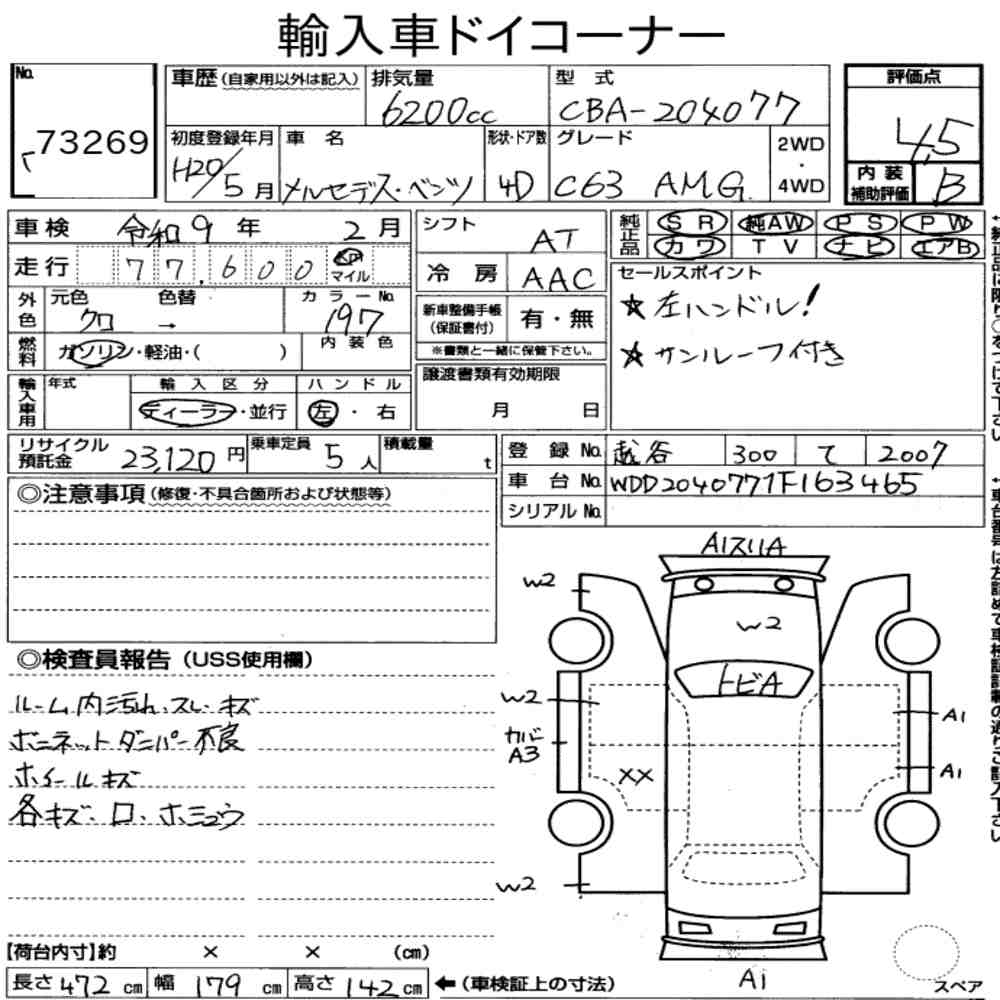 輸入車ドイコーナー
No.
73269
車歴(自家用以外は記入)
排気量
6200cc
型式
CBA-204077
評価点
4.5
初度登録年月
H20/5月
車名
メルセデス・ベンツ
形状・ドア数
4D
グレード
C63 AMG
2WD
・
4WD
内装
補助評価
B
車検
令和9年2月
走行
77,600
km
マイル
シフト
AT
冷房
AAC
純正品
SR
純AW
PS
PW
カワ
TV
ナビ
エアB
外色
元色
色替
カラーNo.
クロ →
197
燃料
ガソリン・軽油・( )
内装色
新車整備手帳
(保証書付)
有・無
※書類と一緒に保管下さい。
セールスポイント
★左ハンドル!
★サンルーフ付き
輸入車用
年式
輸入区分
ハンドル
ディーラー・並行
左・右
譲渡書類有効期限
月 日
リサイクル
預託金
23,120円
乗車定員
5人
積載量
t
登録No.
越谷 300 て 2007
車台No.
WDD2040771F163465
シリアルNo.
◎注意事項(修復・不具合箇所および状態等)
◎検査員報告(USS使用欄)
ルーム内汚れ、スレ、キズ
ボンネットダンパー不良
ホイールキズ
各キズ、
A1スリA
W2
W2
トビA
W2
カバー
A3
XX
A1
A1
W2
A1
スペア
【荷台内寸】約 × × (cm)
長さ472cm
幅179cm
高さ142cm
←(車検証上の寸法)